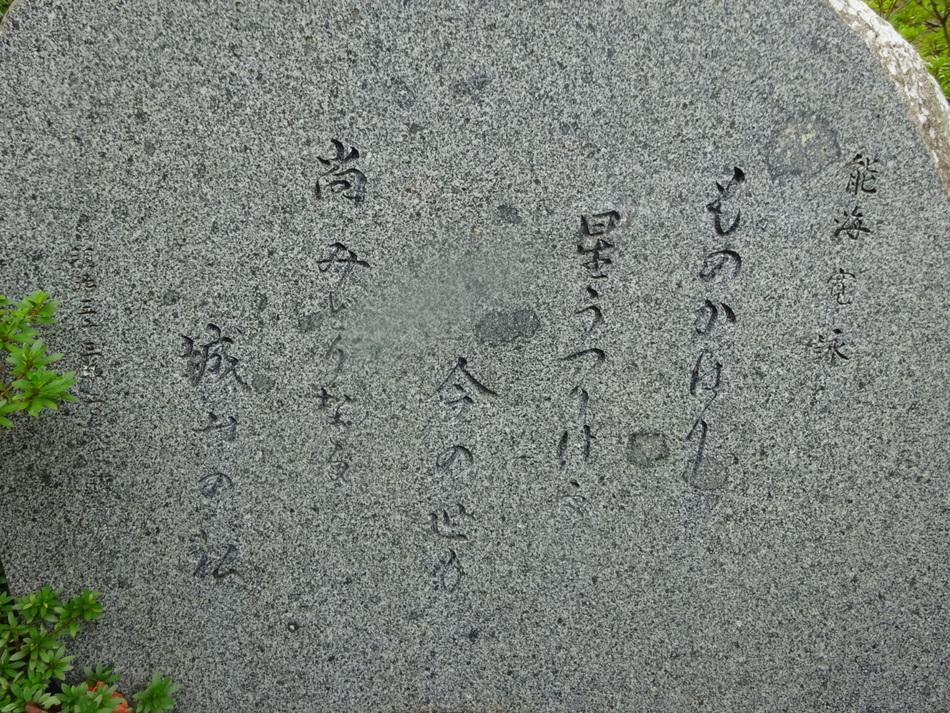 能海寛 詠
ものかはり
星うつりけふ
今の世の
尚みどりなる
城山の松